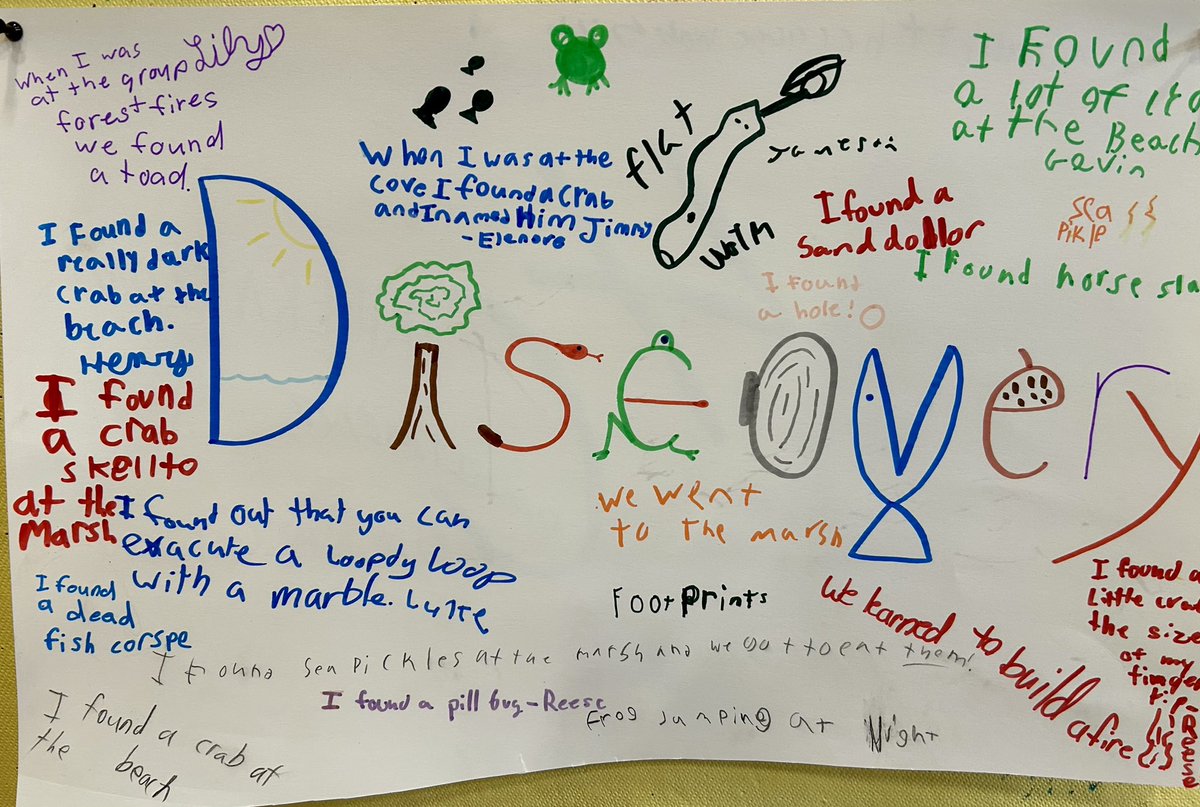 When I was
at the group Lily
forest fires
we found
a toad.
When I was at the
cove I found a crab
and I named Him Jimmy
-Elenore
flat
worm
I Found
a lot of
at the Beach
Gavin
I found a
Sand dollor
Sea
Pikle
I Found horse
I found
a hole!
I Found a
really dark
crab at the
beach.
Henry
Discovery
I found
a crab
skellto
at the
Marsh
I found out that you can
exacute a loopdy loop
with a marble.
we went
to the marsh
Footprints
I found
a dead
fish corspe
We learned to build a fire
I found a
Little
the size
of my
finger
tip
I Found sea pickles at the marsh and we got to eat them!
I found a pill bug-Reese
Frog Jumping at Night
I found a crab at
the beach